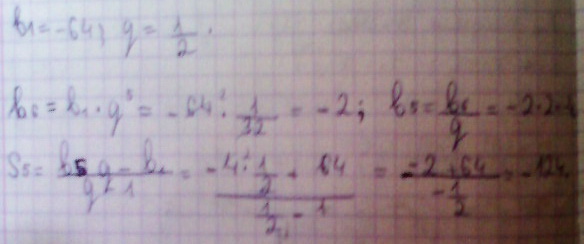 b₁ = -64; q = 1/2.
b₆ = b₁ · q⁵ = -64 · 1/32 = -2; b₅ = b₆/q = -2·2
S₅ = (b₅q - b₁)/(q - 1) = (-4 · 1/2 + 64)/(1/2 - 1) = (-2 + 64)/(-1/2) = -124